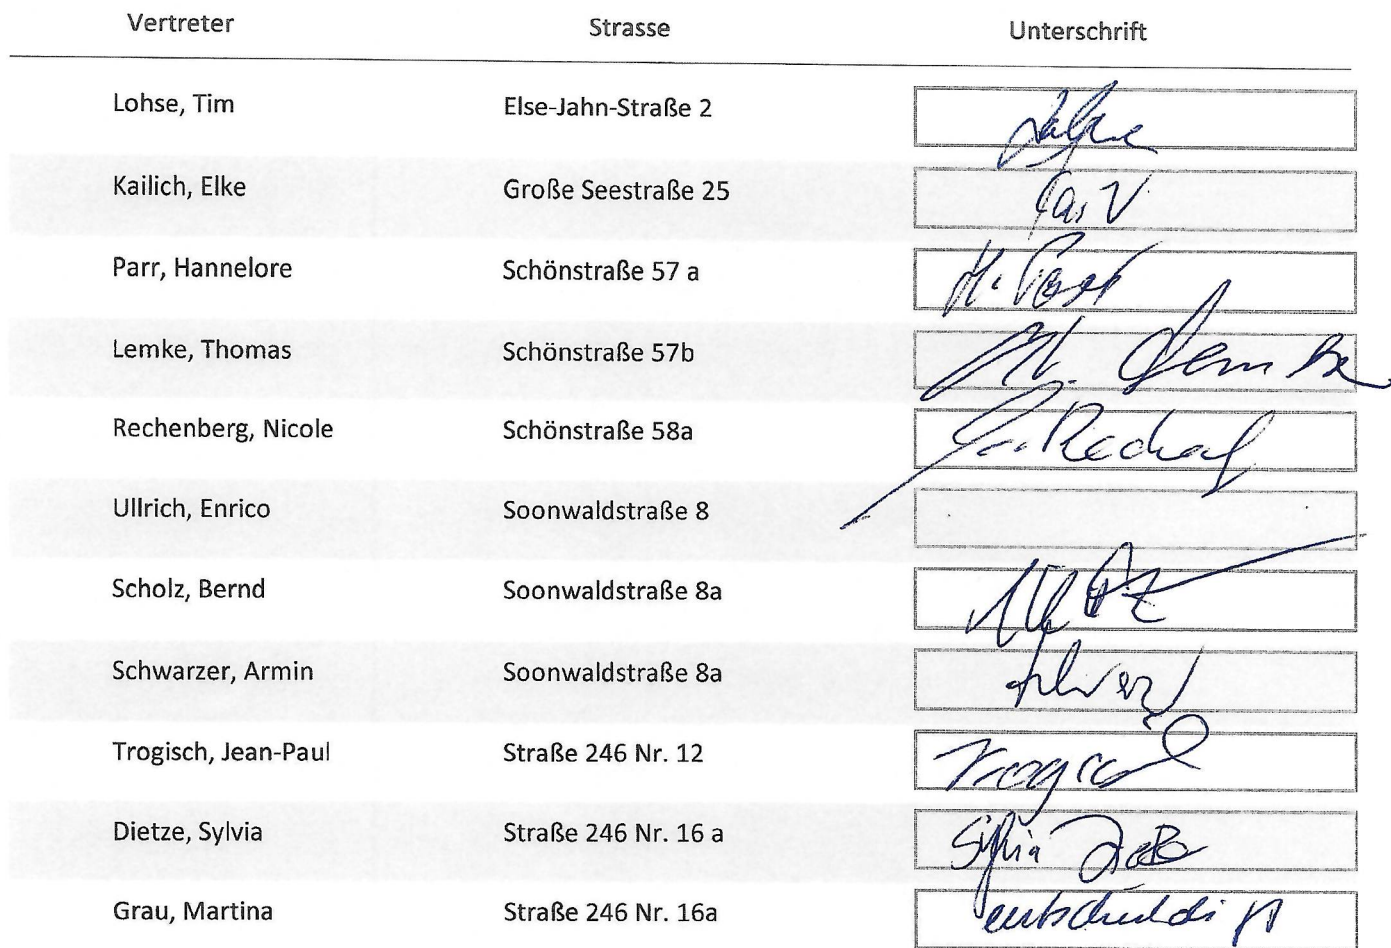 Vertreter Strasse Unterschrift
Lohse, Tim Else-Jahn-Straße 2
Kailich, Elke Große Seestraße 25
Parr, Hannelore Schönstraße 57 a
Lemke, Thomas Schönstraße 57b
Rechenberg, Nicole Schönstraße 58a
Ullrich, Enrico Soonwaldstraße 8
Scholz, Bernd Soonwaldstraße 8a
Schwarzer, Armin Soonwaldstraße 8a
Trogisch, Jean-Paul Straße 246 Nr. 12
Dietze, Sylvia Straße 246 Nr. 16 a Sylvia
Grau, Martina Straße 246 Nr. 16a entschuldigt